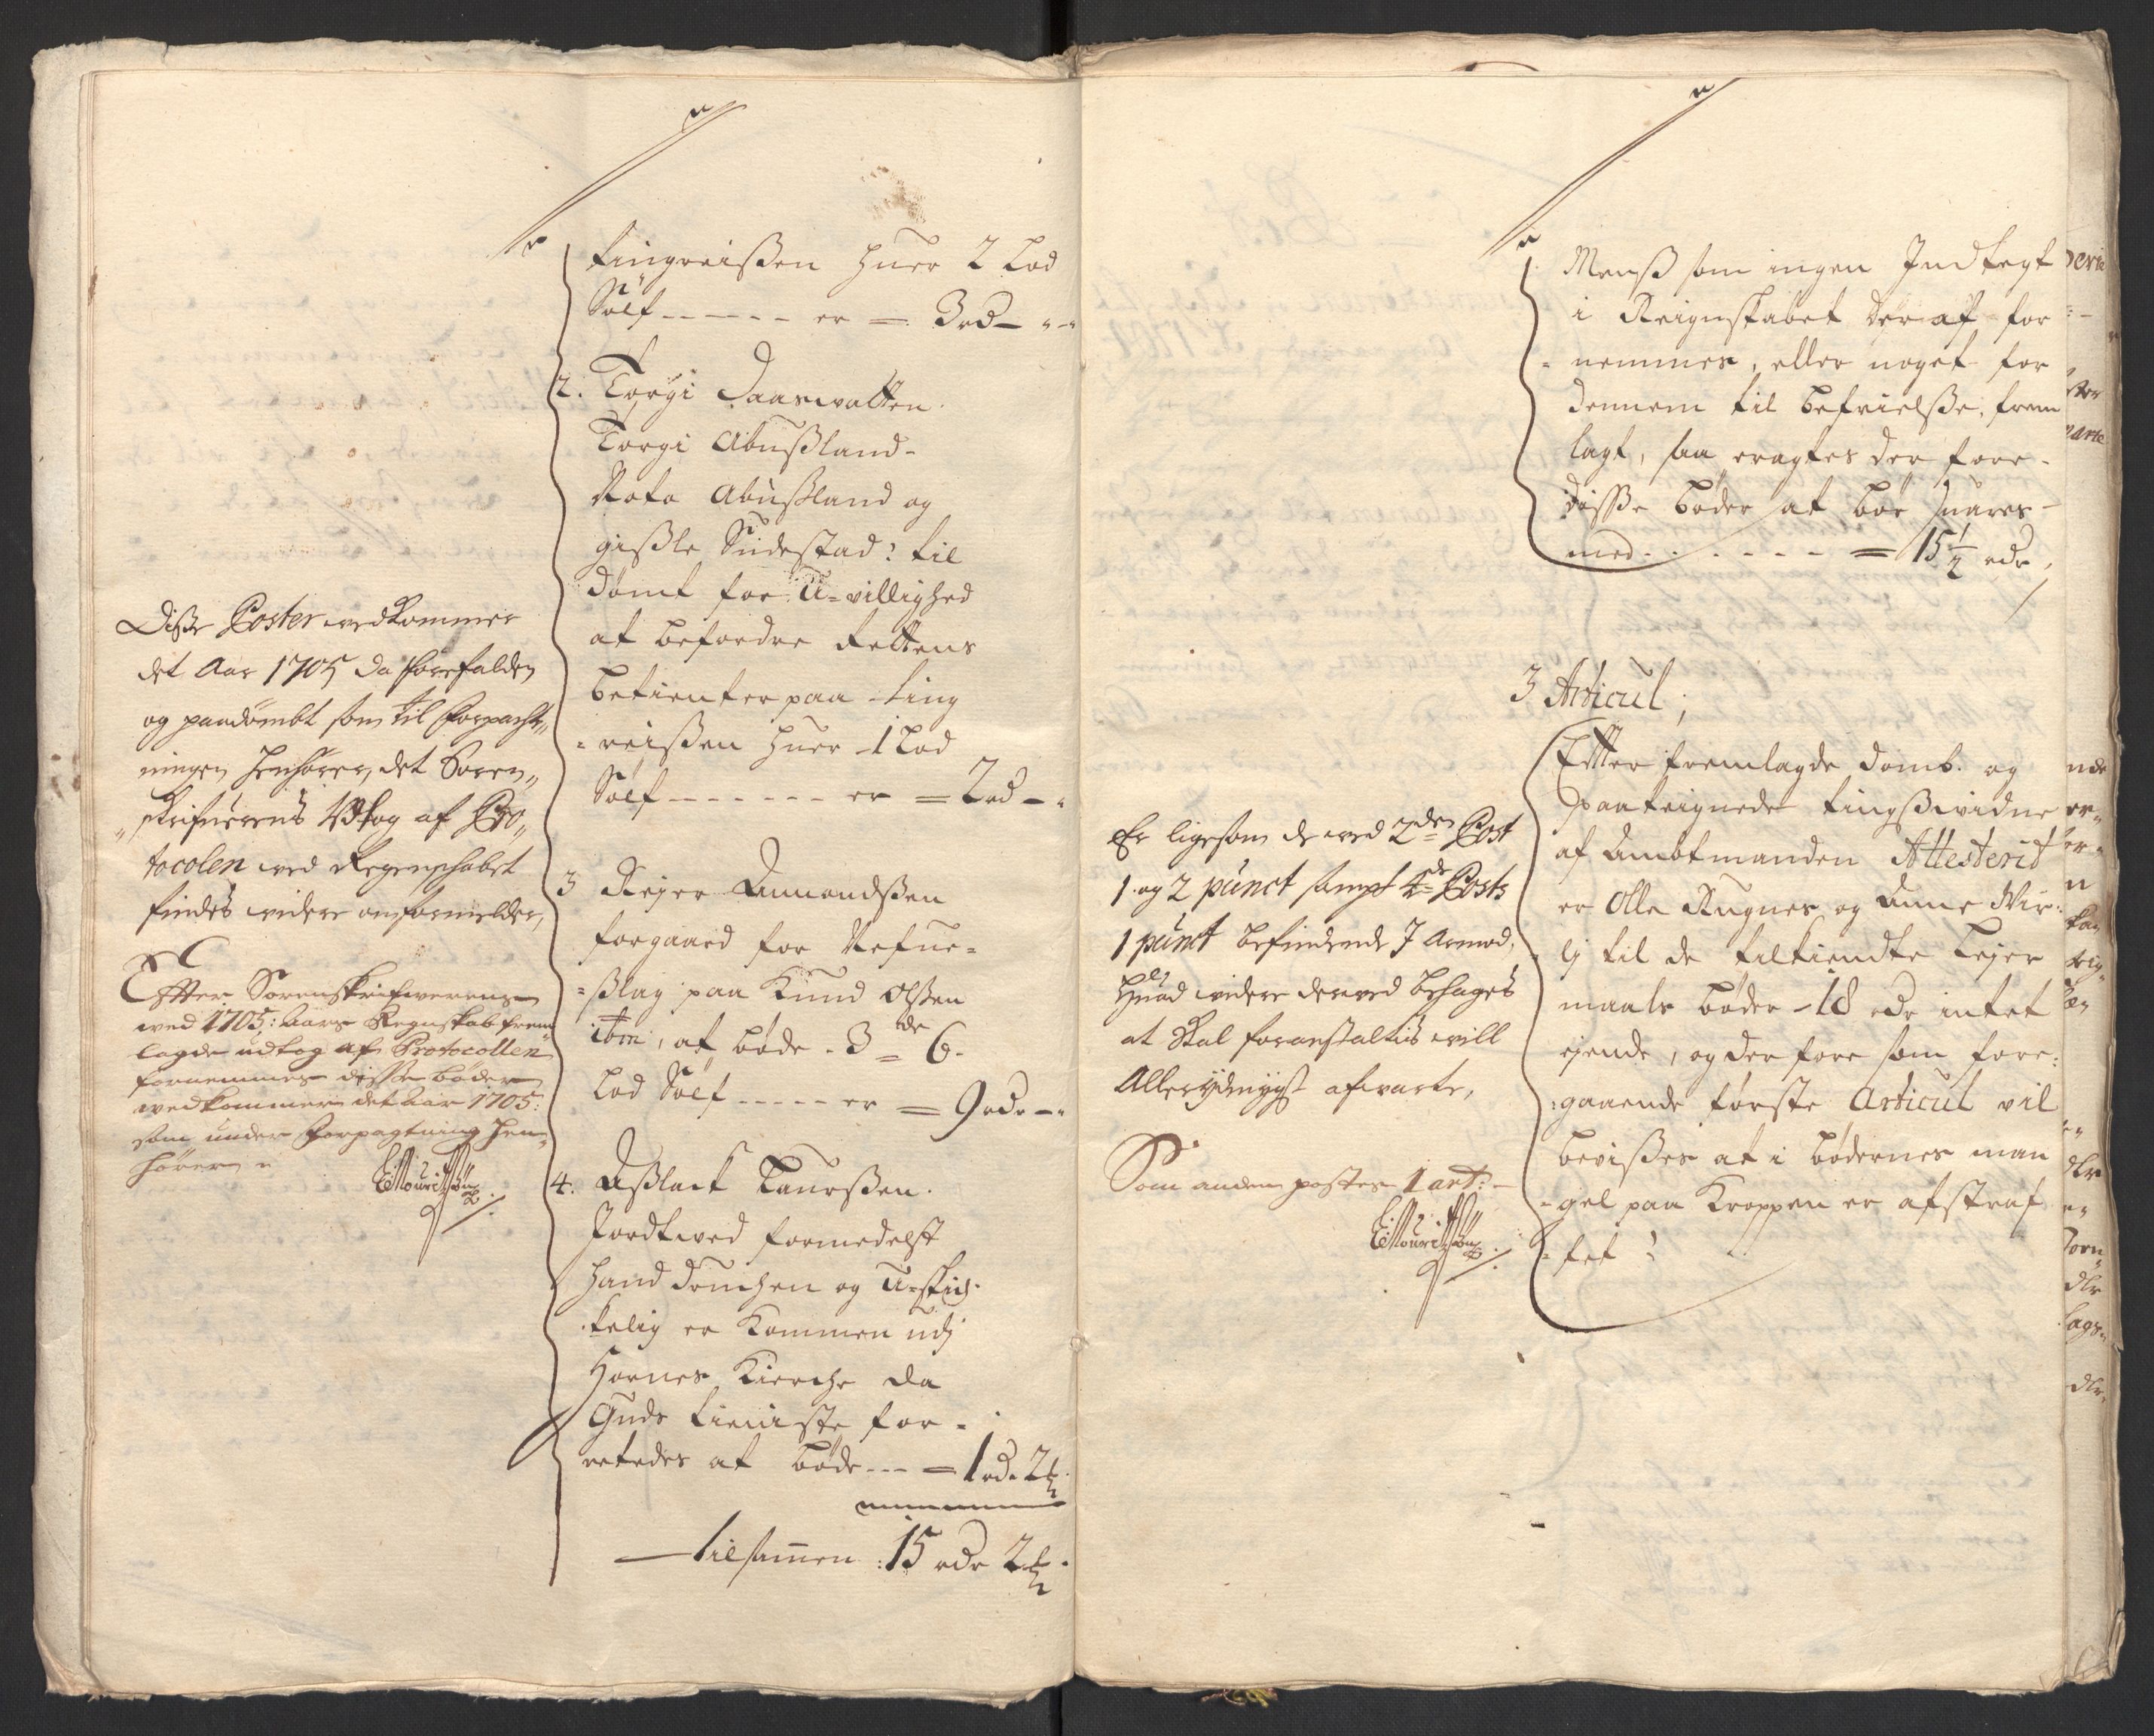 tingreißen huer 2 Lod
Sølf - - - - - er = 3 rd - "-"
2. Torgi Daaswatten.
Torgi Abußland -
Aabußland og
gißle Sudestad: til
dømt for U-villighed
at befordre Rettens
betienter paa ting
=reißen huer - 1 Lod
Sølf - - - - - - er = 2 rd - "
3 Rejer Amundßen
forgaard for Nefue=
=ßlag paa Knud Olßen
ibm, at bøde - 3 de 6.
Lod Sølf - - - - - er = 9 rdr - "
4. Aßlack Taarßen.
Jordtved formedelst
hand drucken og U-skick
kelig er kommen udj
Hornes Kierche da
Guds tieniste for=
rettedes at bøde - - - = 1 rd. 2 ß
tilsamen: 15 rdr 2 ß.
Diße Poster vedkommer
det Aar 1705 da forefalden
og paadømbt som til forpacht,,
ningen henhører, det Soren,,
,,skrifuerens Udtog af Pro,,
tocolen ved Regenschabet
findes videre omformelder,
Efter Sorenskrifwerens
wed 1705: Aars Regnskab frem
lagde udtog af Protocollen
fornemmes disse bøder
wedkommer det Aar 1705:
som under Forpagtning hen,,
hører
Menß som ingen Indtegt
i Reignskabet der af for
=nemmes, eller noget for
dennem til befrielße, frem
lagt, saa eragtes der fore -
disse bøder at bør suares -
med - - - - - - = 15 1/2 rdr,
3 Articul;
Efter fremlagde domb. og
paateignede tingßvidne
af Ambtmanden Attesterit
er Olle Rugnes og Anne Nir:
lj til de tilkiendte Lejer
maals bøder - 18 rdr intet
ejende, og der fore som fore:
:gaaende første Articul vil
bevißes at i bødernes man
=gel paa Kroppen er afstraf
=fet?
Er ligesom de ved 2den Post
1. og 2 punct sampt 4de Posts
1 punct befindende J Armod,
Huad videre derved behages
at skal foranstaltis vill
Allerydmygst afvarte,
Som anden postes 1 art: -